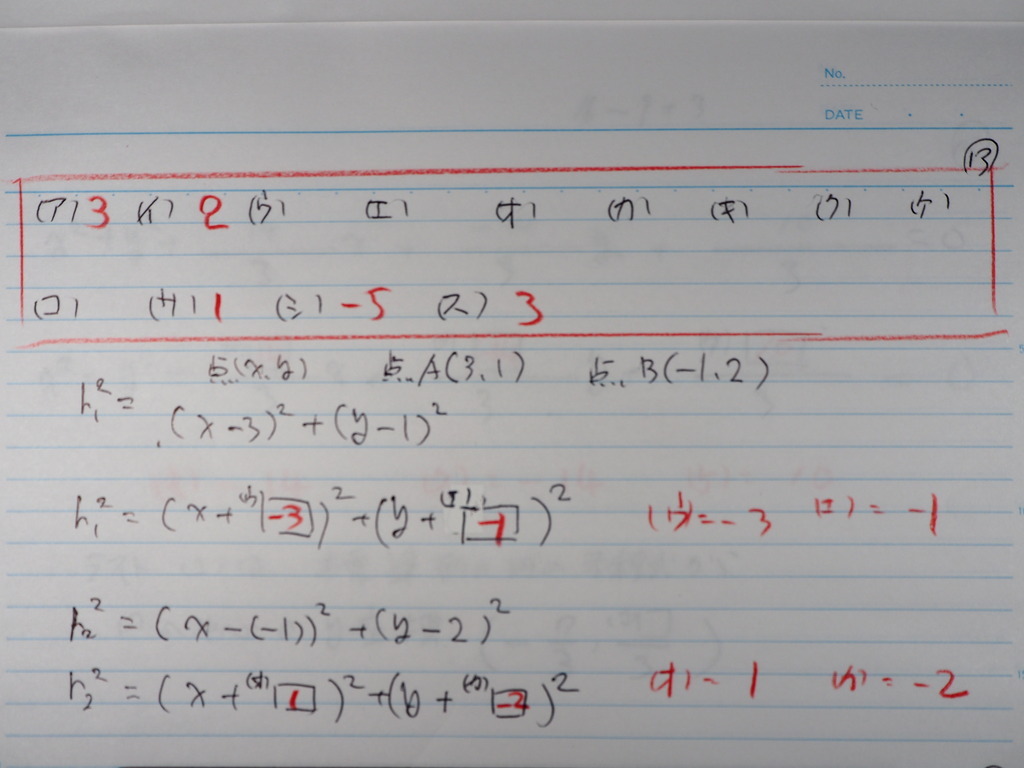 No.
DATE
⑬
(ア) 3 (イ) 2 (ウ) (エ) (オ) (カ) (キ) (ク) (ケ)
(コ) (サ) 1 (シ) -5 (ス) 3
点(x, y) 点A(3, 1) 点B(-1, 2)
r₁² = (x-3)² + (y-1)²
r₁² = (x + (ウ) -3)² + (y + (エ) -1)² (ウ) = -3 (エ) = -1
r₂² = (x-(-1))² + (y-2)²
r₂² = (x + (オ) 1)² + (y + (カ) -2)² (オ) = 1 (カ) = -2